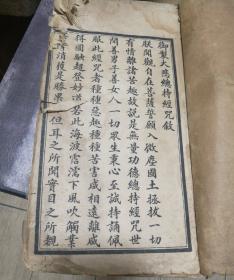 御製大悲總持經咒敘
朕聞觀自在菩薩誓願入微塵國土拯拔一切
有情離諸苦趣故說是無量功德總持經咒世
間善男子善女人一切眾生秉心至誠持誦佩
服此經咒者種種惡趣種種苦害咸相遠離咸
得圓融超登妙道若此海波雲濡下風吹觸業
消獲是勝果 但耳之所聞實目之所親